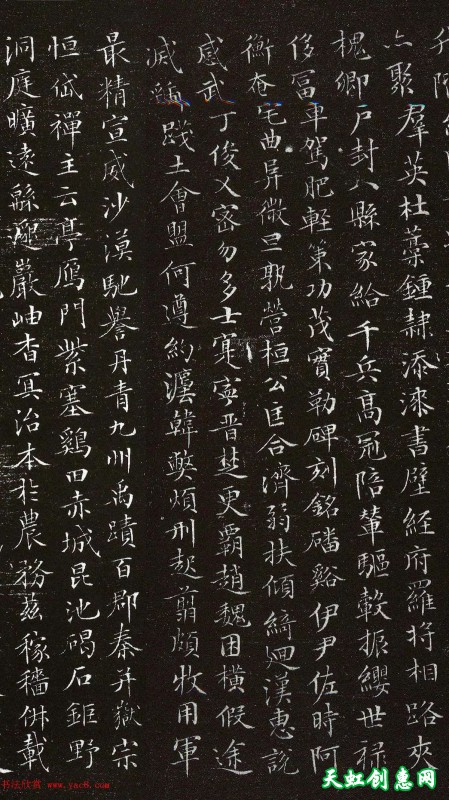 亦聚羣英杜藁鍾隷添漆書壁經府羅將相路夾
槐卿戶封八縣家給千兵高冠陪輦驅轂振纓世祿
侈富車駕肥輕策功茂實勒碑刻銘磻谿伊尹佐時阿
衡奄宅曲阜微旦孰營桓公匡合濟弱扶傾綺迴漢惠說
感武丁俊乂密勿多士寔寍晉楚更霸趙魏困橫假途
滅虢踐土會盟何遵約灋韓弊煩刑起翦頗牧用軍
最精宣威沙漠馳譽丹青九州禹蹟百郡秦并嶽宗
恒岱禪主云亭鴈門紫塞鷄田赤城昆池碣石鉅野
洞庭曠遠緜邈巖岫杳冥治本於農務茲稼穡俶載
书法欣赏 www.yac8.com
天虹创惠网